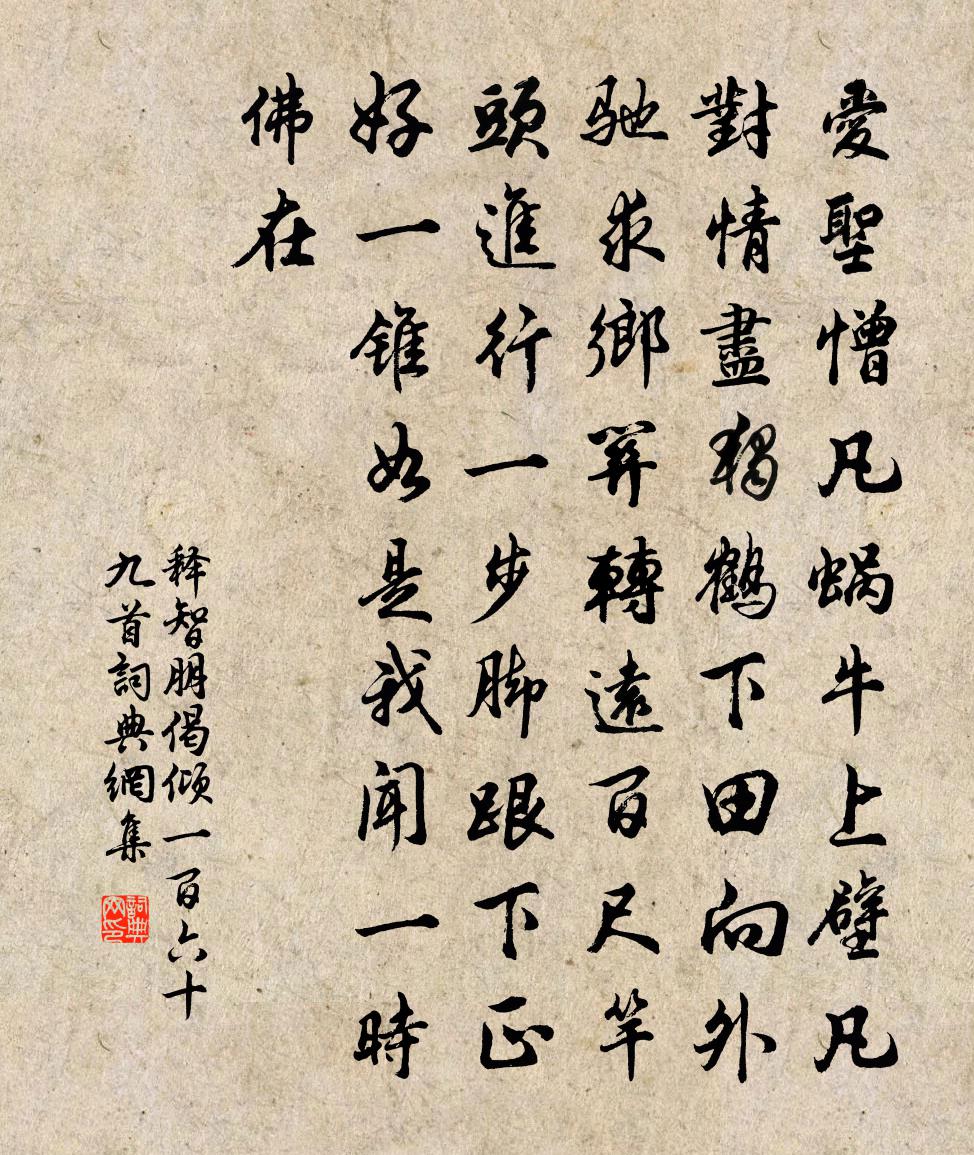 愛聖憎凡蝸牛上壁凡
對情盡獨鶴下田向外
馳求鄉關轉遠百尺竿
頭進行一步腳跟下正
好一錐如是我聞一時
佛在
释智朋偈倾一百六十
九首詞典網集
詞典
网印